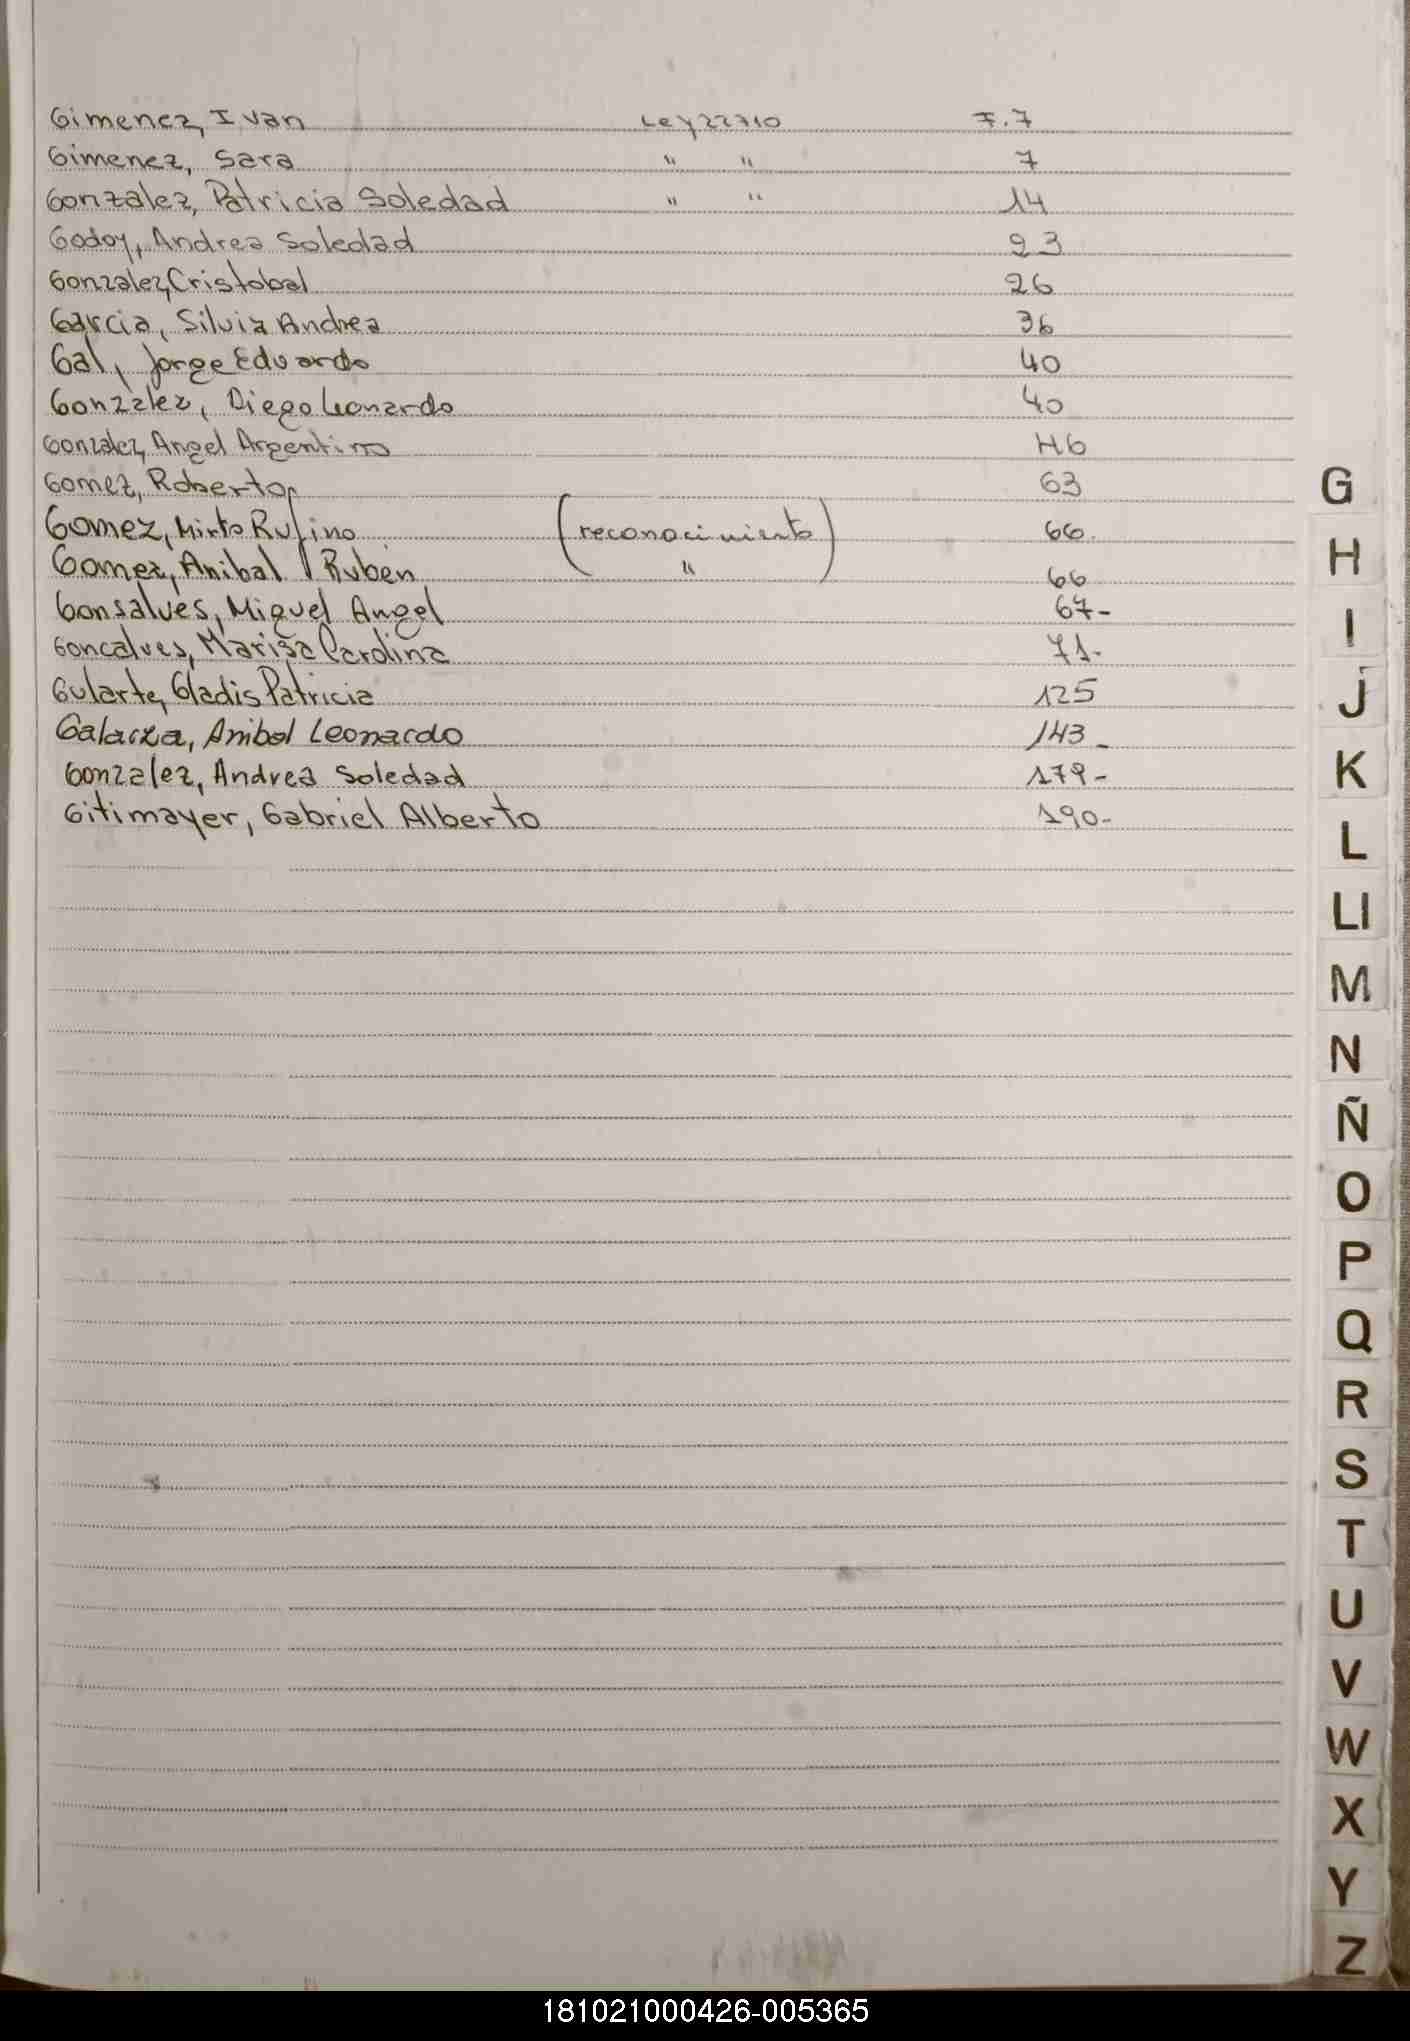 Gimenez, Ivan Ley 22710 F. 7
Gimenez, Sara " " 7
Gonzalez, Patricia Soledad " " 14
Godoy, Andrea Soledad 23
Gonzalez, Cristobal 26
Garcia, Silvia Andrea 36
Gal, Jorge Eduardo 40
Gonzalez, Diego Leonardo 40
Gonzalez, Angel Argentino 46
Gomez, Roberto 63
Gomez, Mirto Rufino (reconocimiento) 66.
Gomez, Anibal Ruben " 66
Gonsalves, Miguel Angel 67-
Goncalves, Marisa Carolina 71-
Gularte, Gladis Patricia 125
Galarza, Anibal Leonardo 143-
Gonzalez, Andrea Soledad 179-
Gitimayer, Gabriel Alberto 190-
G
H
I
J
K
L
Ll
M
N
Ñ
O
P
Q
R
S
T
U
V
W
X
Y
Z
181021000426-005365